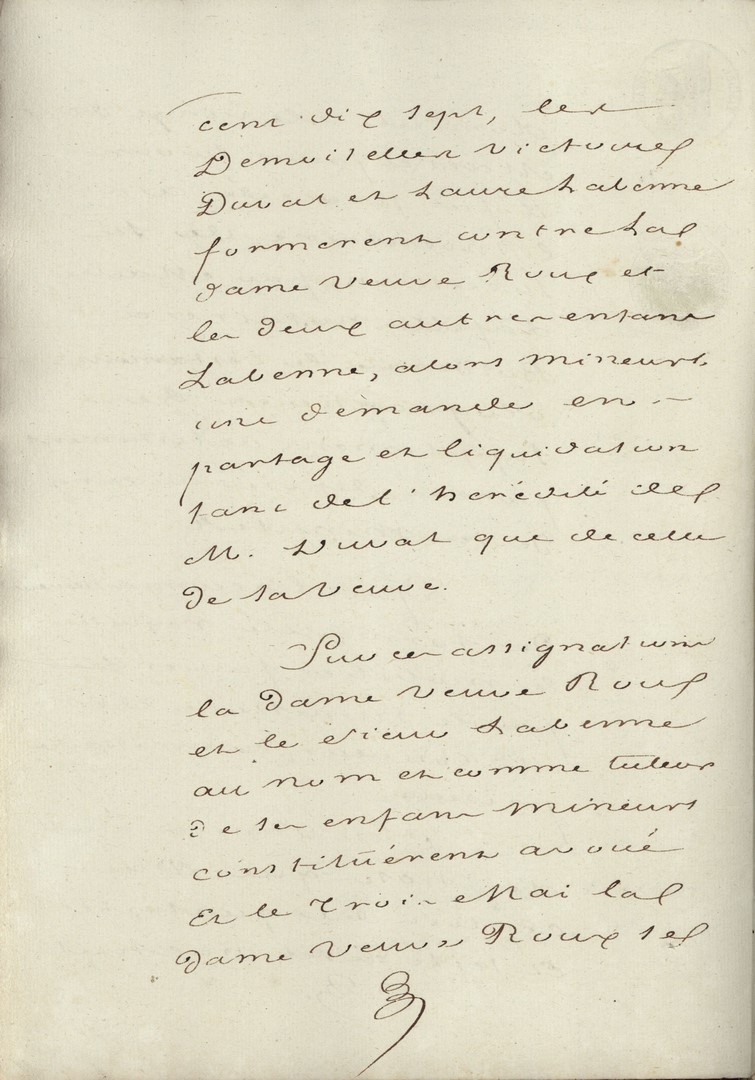 cent dix sept, les
Demoiselles Victoire
Duval et Laure Labenne
formerent contre la
dame veuve Roux et
les deux autres enfans
Labenne, alors mineurs,
une demande en -
partage et liquidation
tant de l'hérédité de
M. Duval que de celle
de sa veuve.
Sur ces assignations
la Dame veuve Roux
et le sieur Labenne
au nom et comme tuteur
de ses enfans mineurs
constituérent avoué
Et le trois Mai la
Dame veuve Roux se